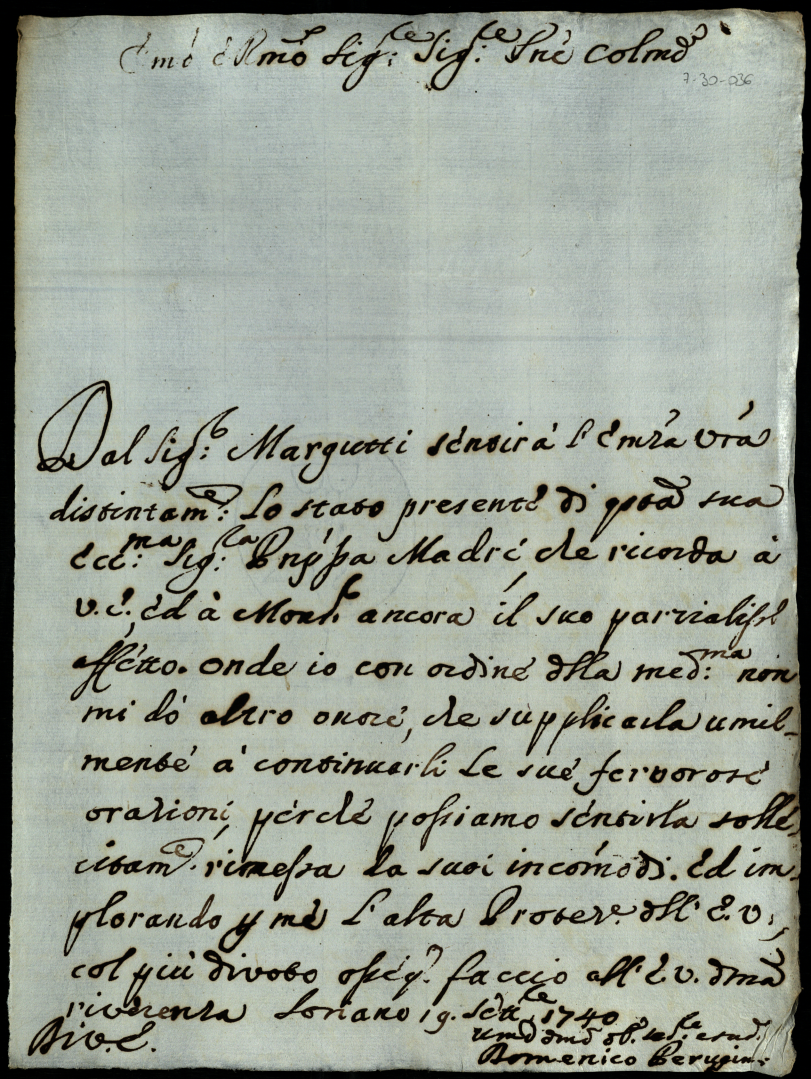 Emo e Rmo Sig:re Sig:re Pne Colmo
7-30-036
Dal Sig:r Margutti sentirà l'Emza Vra
distintame: lo stato presente di qsta sua
Ecc:ma Sig:ra Pnpssa Madre, che ricorda à
V.E., ed à Mons.r ancora il suo parzialisse
affetto. Onde io con ordine dlla med:ma non
mi dò altro onore, che supplicarla umil-
mente à continuarli le sue fervorose
orazioni, perché possiamo sentirla solle-
citame rimessa da suoi incomodi. Ed im-
plorando p me l'alta Protez.e dell'E.V.,
col più divoto osseq.o faccio all'E.V. dma
riverenza Soriano 19. Sett.re 1740
Di V.E.
Domenico Perugini